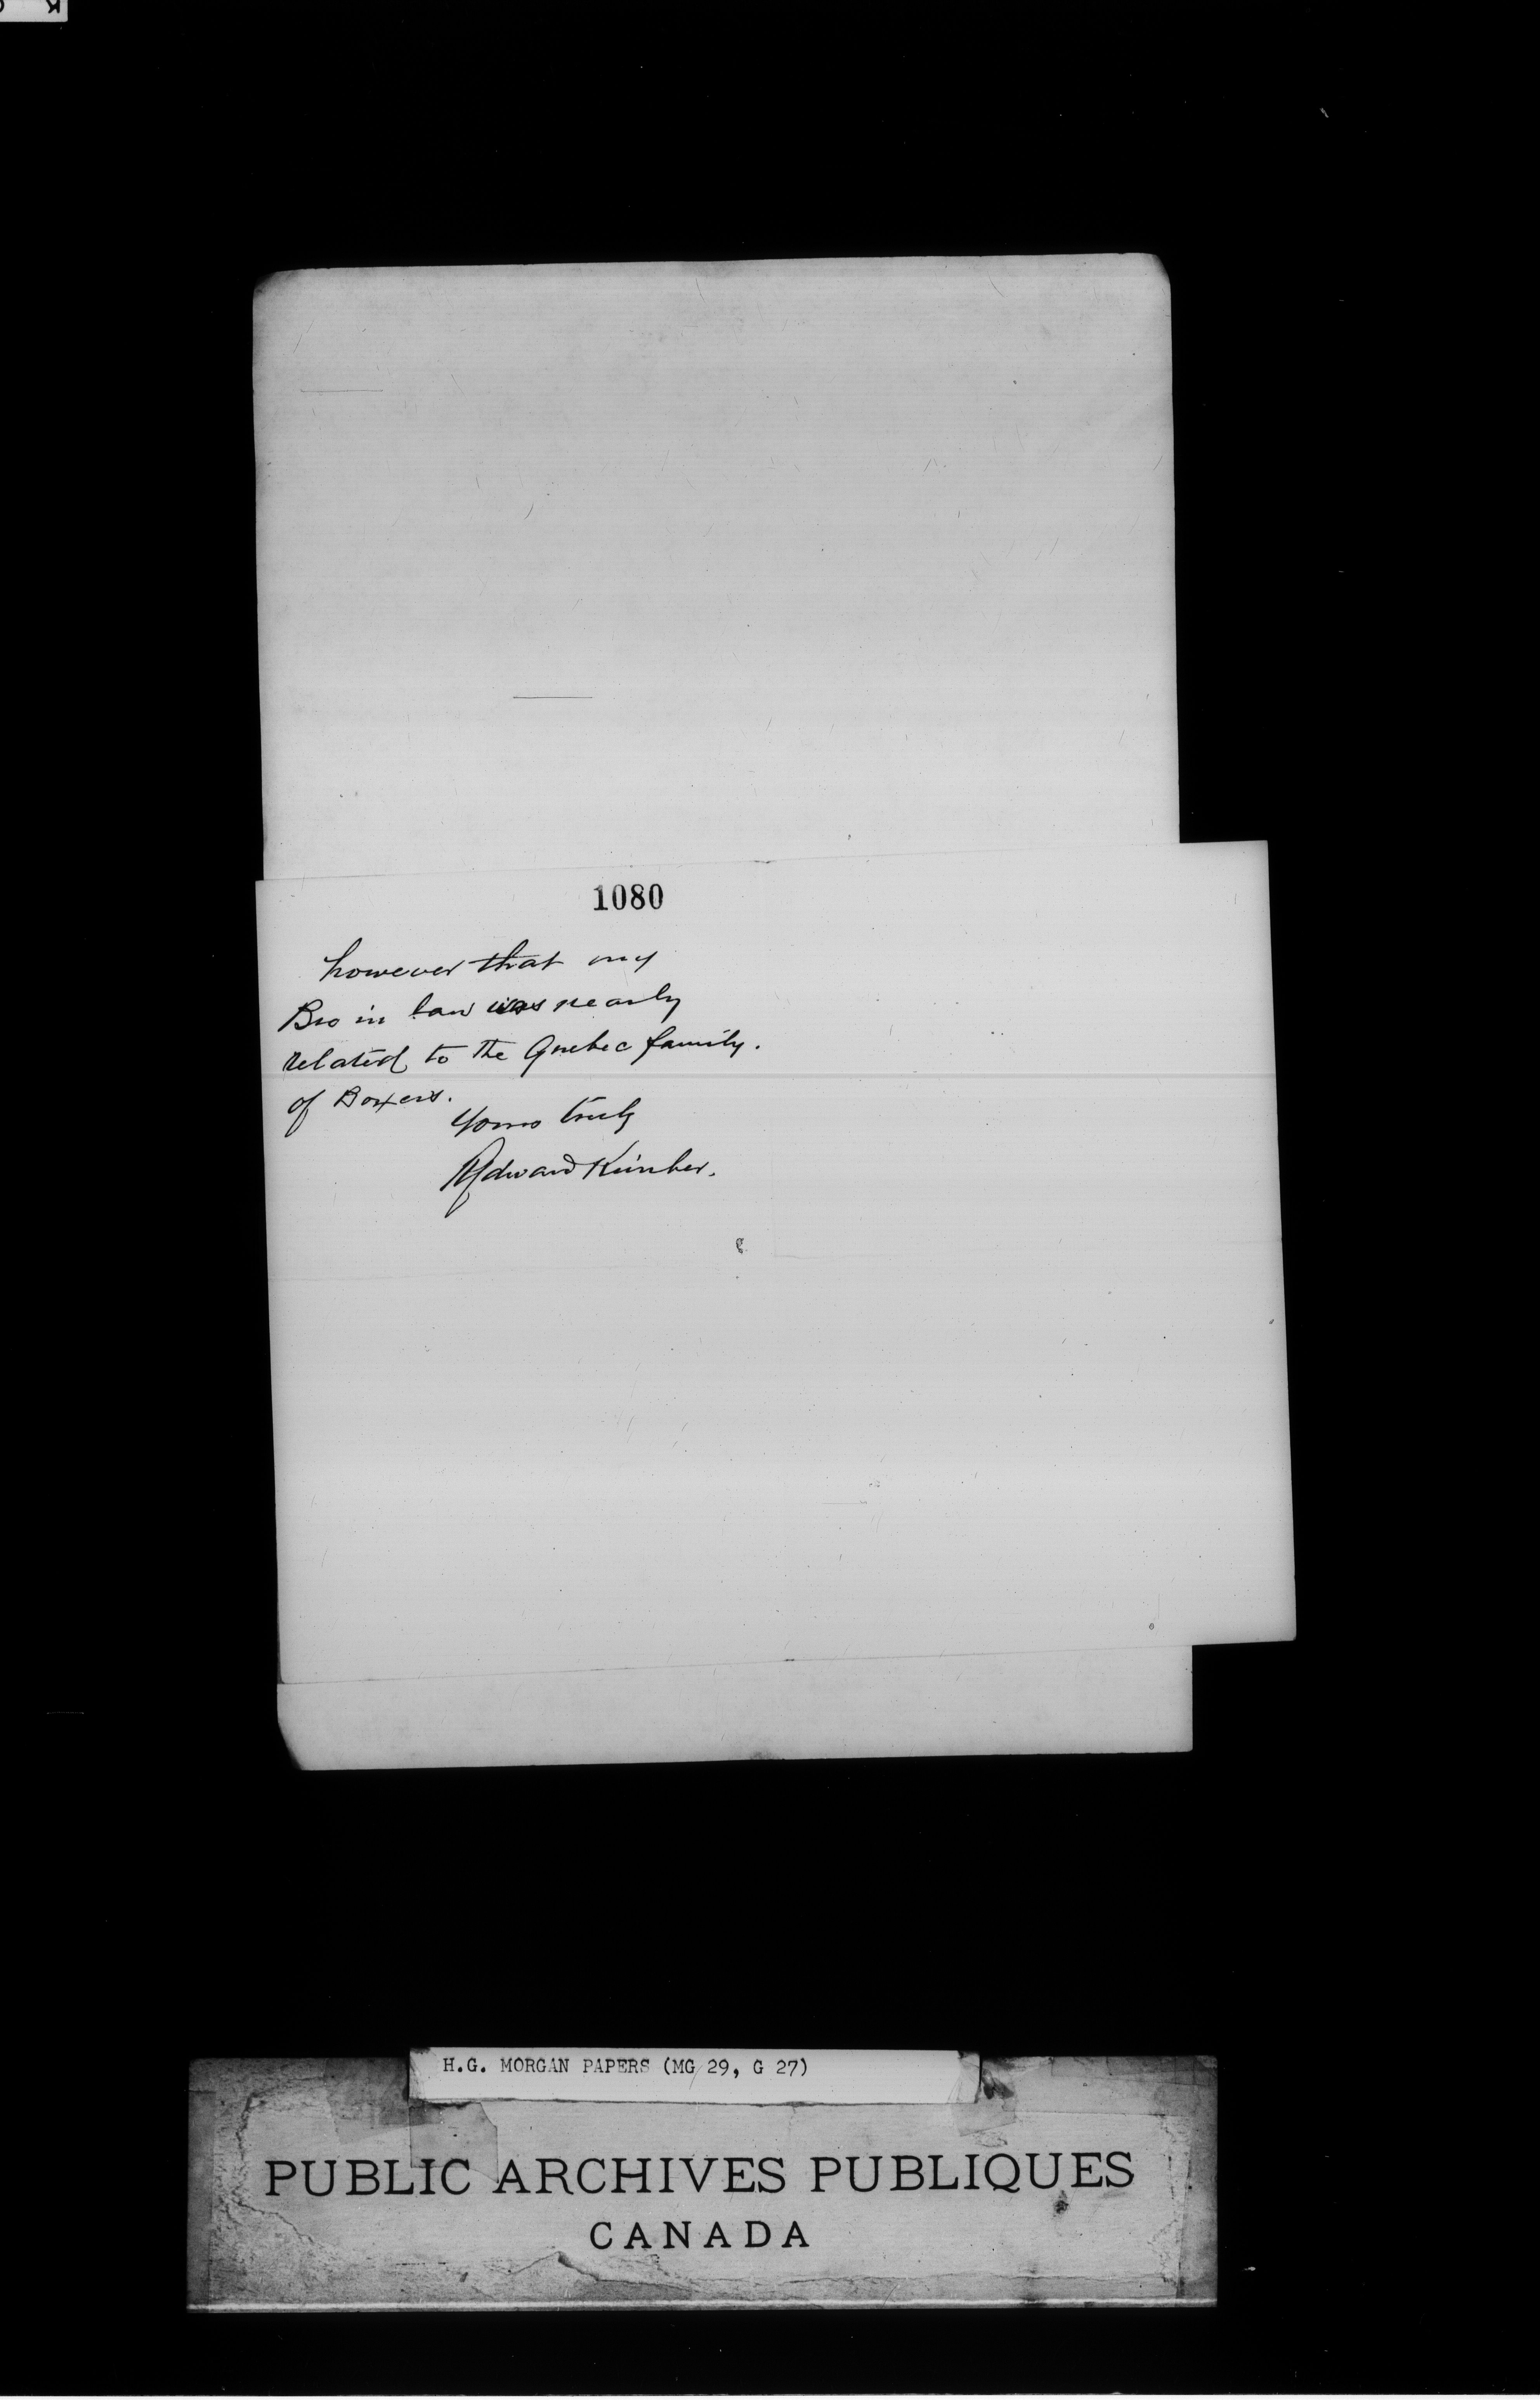 1080
however that my
Bro in law was nearly
related to the Quebec family.
of Boxers.
Yours truly
Edward Kimber.
H.G. MORGAN PAPERS (MG 29, G 27)
PUBLIC ARCHIVES PUBLIQUES
CANADA